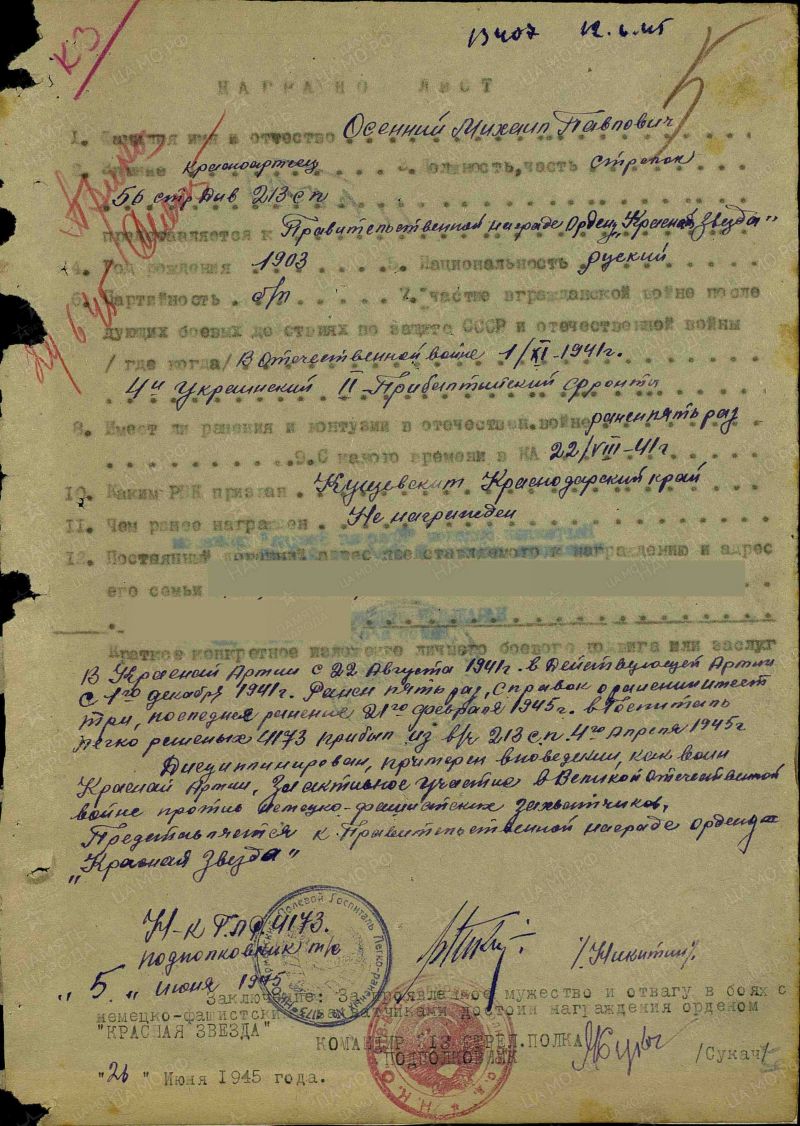 КЗ
13407 12.6.45
НАГРАДНОЙ ЛИСТ
1. Фамилия имя и отчество Осенний Михаил Павлович
2. Звание красноармеец 3. Должность, часть стрелок
56 стр див 213 сп
представляется к Правительственной награде Ордену "Красная Звезда"
4. Год рождения 1903 5. Национальность руский
6. Партийность б/п 7. Участие в гражданской войне после
дующих боевых действиях по защите СССР и отечественной войны
/где когда/ В Отечественной войне 1/XI-1941г.
4й Украинский II Прибалтийский фронты
8. Имеет ли ранения и контузии в отечествен. войне ранен пять раз
9. С какого времени в КА 22/VIII-41г
10. Каким РВК призван Кущевским Краснодарский край
11. Чем ранее награжден Не награжден
12. Постоянный домашний адрес представляемого к награждению и адрес
его семьи
Краткое конкретное изложение личного боевого подвига или заслуг
В Красной Армии с 22 Августа 1941г. в Действующей Армии
с 1го декабря 1941г. Ранен пять раз, справок о ранении имеет
три, последнее ранение 21го февраля 1945г. в Госпиталь
легко раненых 4173 прибыл из в/ч 213 с.п. 4го Апреля 1945г.
Дисциплинирован, примерен в поведении, как воин
Красной Армии, За активное участие в Великой Отечественной
войне против немецко-фашистских захватчиков,
Представляется к Правительственной награде ордену
"Красная Звезда"
Н-к ГЛР 4173.
подполковник м/с /Никитин/
"5" июня 1945
Заключение: За проявленное мужество и отвагу в боях с
немецко-фашистскими захватчиками достоин награждения орденом
"КРАСНАЯ ЗВЕЗДА"
КОМАНДИР 213 СТРЕЛ.ПОЛКА
ПОДПОЛКОВНИК /Сукач/
"26" Июня 1945 года.